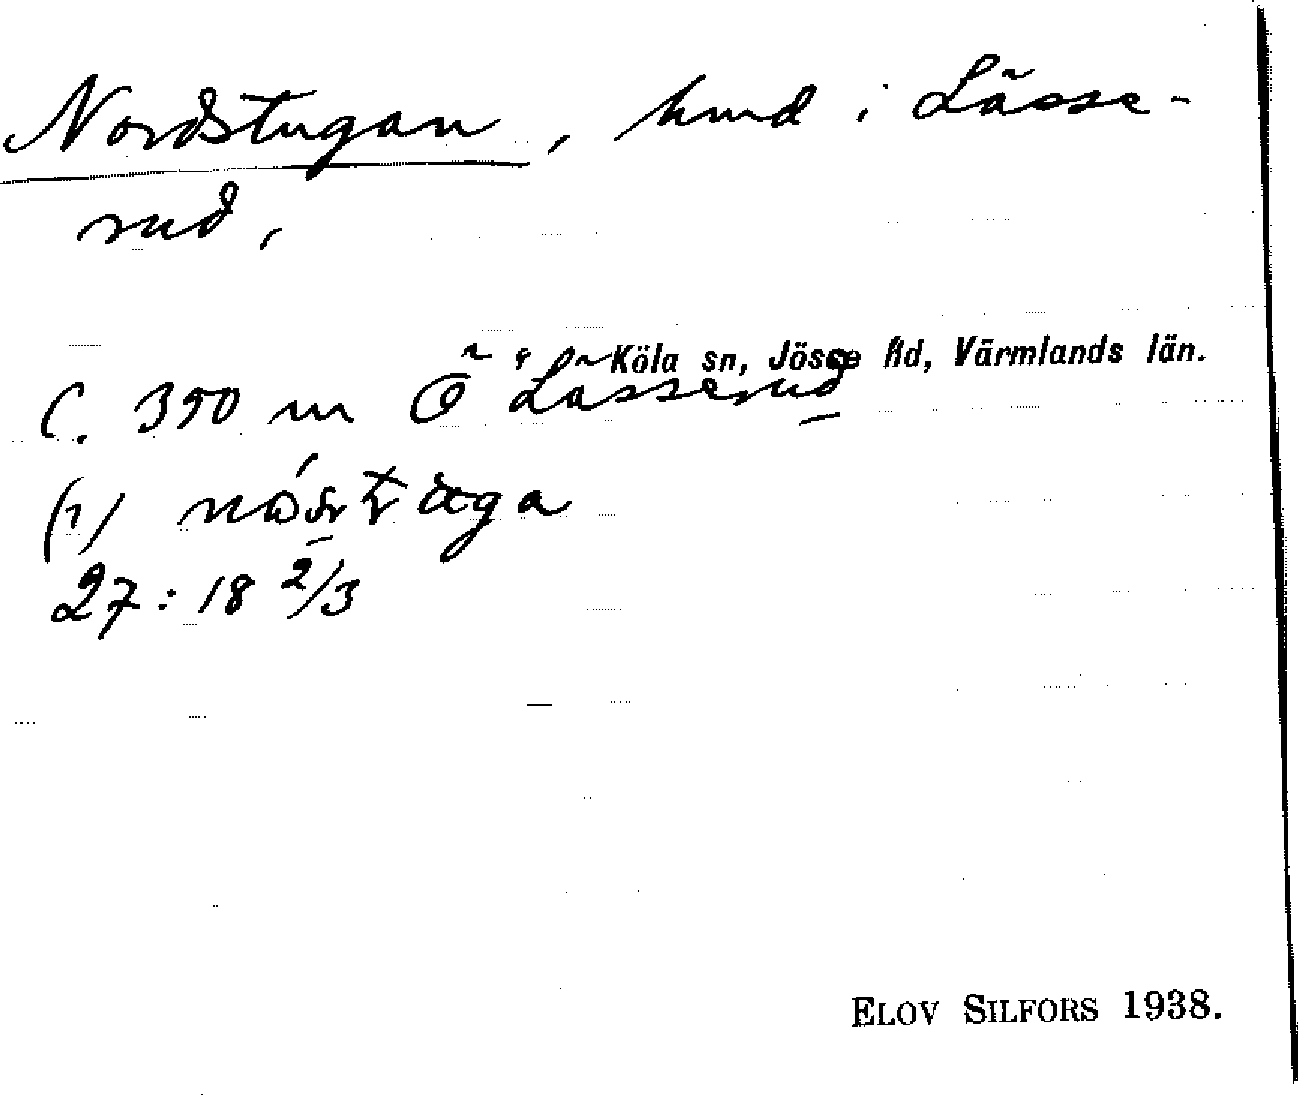 Nordstugan, hmd i Lässe-
rud,
Köla sn, Jösse hd, Värmlands län.
C. 390 m Ö Lässerud
(1)
27:18 2/3
ELOV SILFORS 1938.